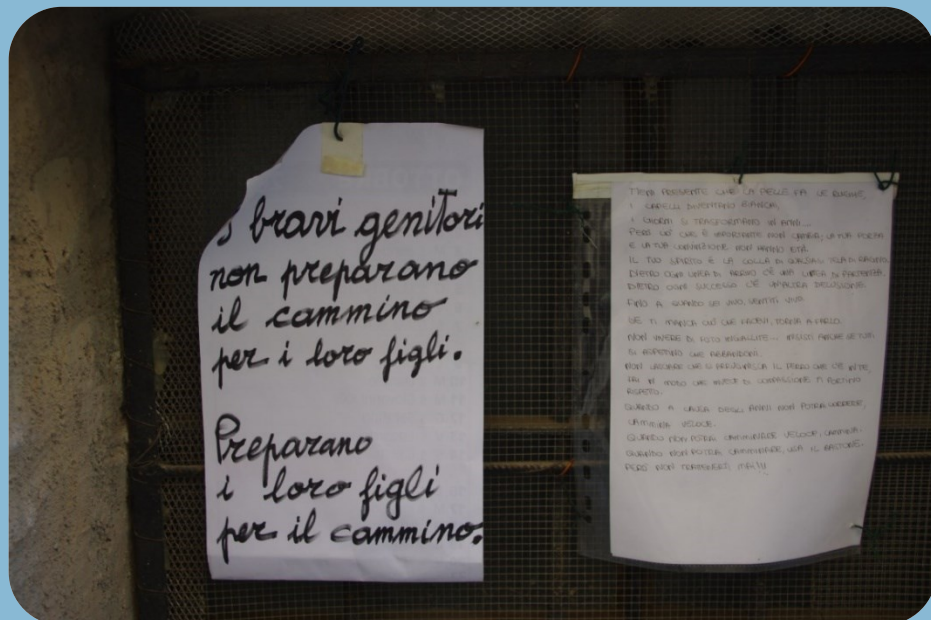 I bravi genitori
non preparano
il cammino
per i loro figli.
Preparano
i loro figli
per il cammino.
TIENI PRESENTE CHE LA PELLE FA LE RUGHE,
I CAPELLI DIVENTANO BIANCHI,
I GIORNI SI TRASFORMANO IN ANNI...
PERÒ CIÒ CHE È IMPORTANTE NON CAMBIA, LA TUA FORZA
E LA TUA CONVINZIONE NON HANNO ETÀ.
IL TUO SPIRITO È LA COLLA DI QUALSIASI TELA DI RAGNO.
DIETRO OGNI LINEA DI ARRIVO C'È UNA LINEA DI PARTENZA.
DIETRO OGNI SUCCESSO C'È UN'ALTRA DELUSIONE.
FINO A QUANDO SEI VIVO, SENTITI VIVO.
SE TI MANCA CIÒ CHE FACEVI, TORNA A FARLO.
NON VIVERE DI FOTO INGIALLITE... INSISTI ANCHE SE TUTTI
SI ASPETTANO CHE ABBANDONI.
NON LASCIARE CHE SI ARRUGGINISCA IL FERRO CHE C'È IN TE,
FAI IN MODO CHE INVECE DI COMPASSIONE TI PORTINO
RISPETTO.
QUANDO A CAUSA DEGLI ANNI NON POTRAI CORRERE,
CAMMINA VELOCE.
QUANDO NON POTRAI CAMMINARE VELOCE, CAMMINA.
QUANDO NON POTRAI CAMMINARE, USA IL BASTONE.
PERÒ NON TRATTENERTI MAI!!!